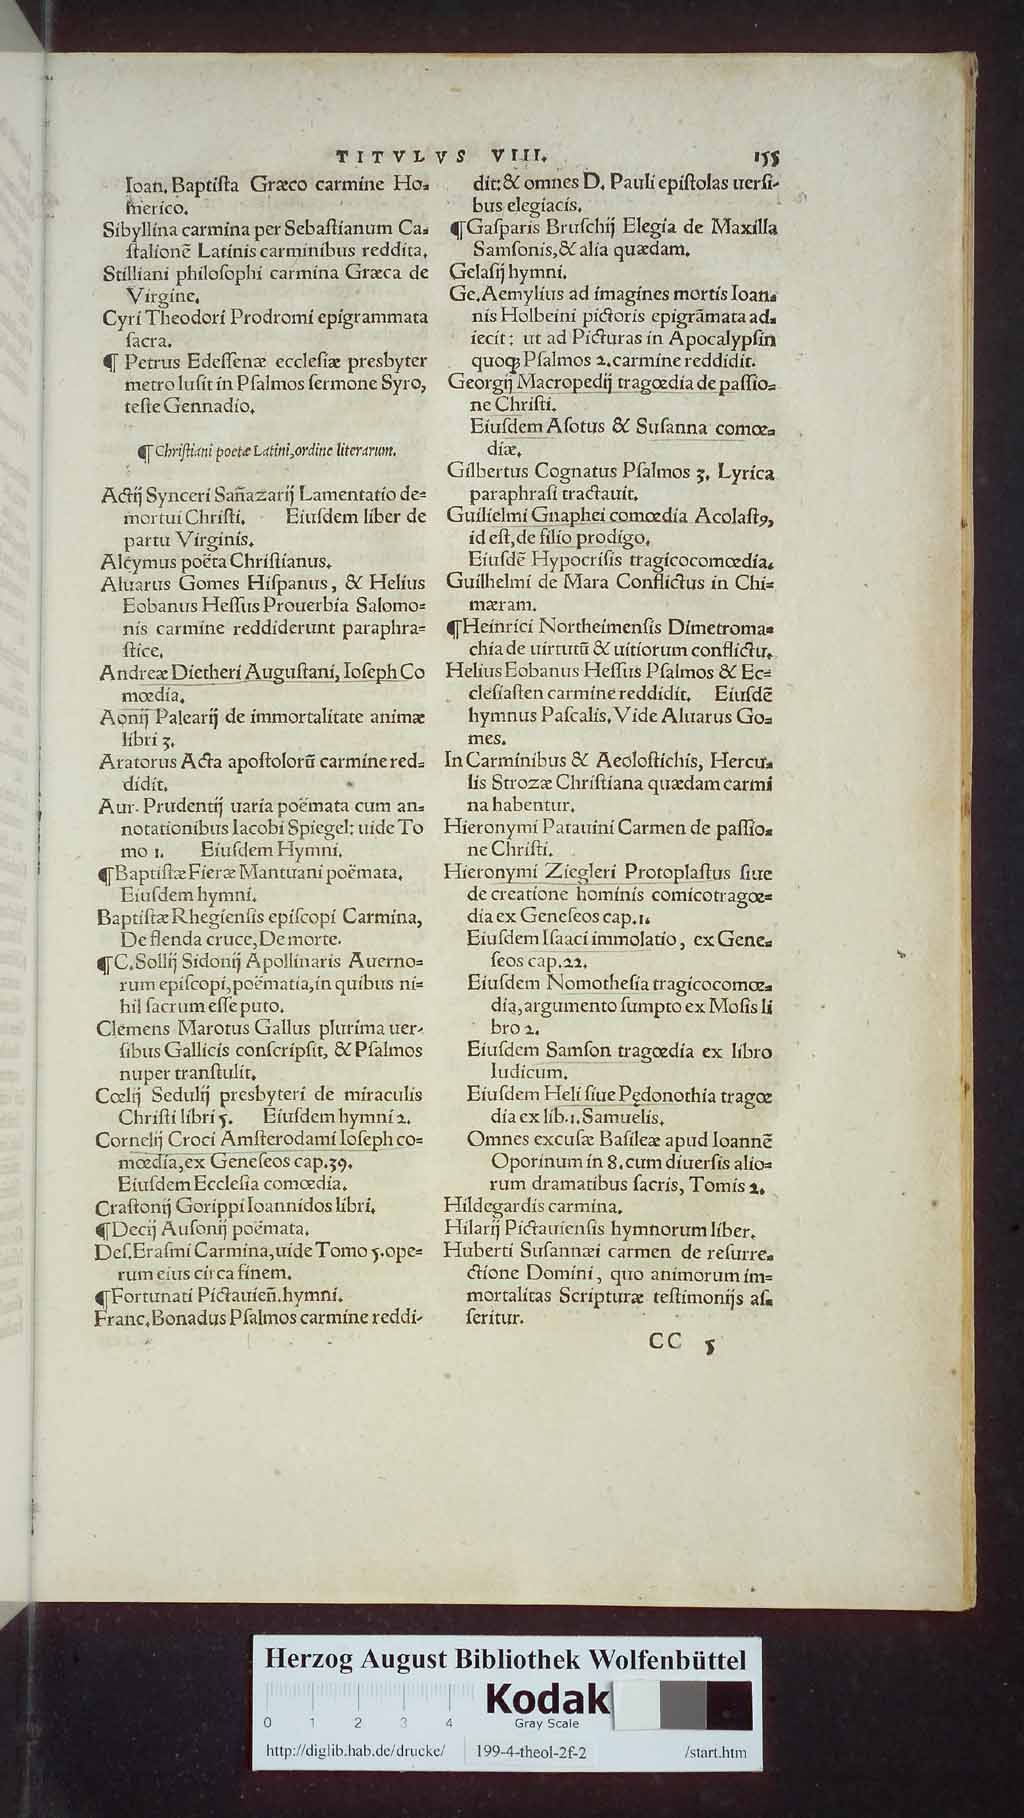 TITVLVS VIII. 155
Ioan. Baptiſta Græco carmine Ho=
merico.
Sibyllina carmina per Sebaſtianum Ca=
ſtalionẽ Latinis carminibus reddita.
Stilliani philoſophi carmina Græca de
Virgine.
Cyri Theodori Prodromi epigrammata
ſacra.
¶ Petrus Edeſſenæ eccleſiæ presbyter
metro luſit in Pſalmos ſermone Syro,
teſte Gennadio.
¶ Chriſtiani poetæ Latini, ordine literarum.
Actij Synceri Sañazarij Lamentatio de=
mortui Chriſti. Eiuſdem liber de
partu Virginis.
Alcymus poëta Chriſtianus.
Aluarus Gomes Hiſpanus, & Helius
Eobanus Heſſus Prouerbia Salomo=
nis carmine reddiderunt paraphra=
ſtice.
Andreæ Dietheri Auguſtani, Ioſeph Co
mœdia.
Aonij Palearij de immortalitate animæ
libri 3.
Aratorus Acta apoſtolorũ carmine red=
didit.
Aur. Prudentij uaria poëmata cum an=
notationibus Iacobi Spiegel: uide To
mo 1. Eiuſdem Hymni.
¶Baptiſtæ Fieræ Mantuani poëmata.
Eiuſdem hymni.
Baptiſtæ Rhegienſis epiſcopi Carmina,
De flenda cruce, De morte.
¶C. Sollij Sidonij Apollinaris Auerno=
rum epiſcopi, poëmatia, in quibus ni=
hil ſacrum eſſe puto.
Clemens Marotus Gallus plurima uer-
ſibus Gallicis conſcripſit, & Pſalmos
nuper tranſtulit.
Cœlij Sedulij presbyteri de miraculis
Chriſti libri 5. Eiuſdem hymni 2.
Cornelij Croci Amſterodami Ioſeph co=
mœdia, ex Geneſeos cap. 39.
Eiuſdem Eccleſia comœdia.
Craſtonij Gorippi Ioannidos libri.
¶Decij Auſonij poëmata.
Deſ. Eraſmi Carmina, uide Tomo 5. ope=
rum eius circa finem.
¶Fortunati Pictauieñ. hymni.
Franc. Bonadus Pſalmos carmine reddi-
dit: & omnes D. Pauli epiſtolas uerſi-
bus elegiacis.
¶Gaſparis Bruſchij Elegia de Maxilla
Samſonis, & alia quædam.
Gelaſij hymni.
Ge. Aemylius ad imagines mortis Ioan=
nis Holbeini pictoris epigrãmata ad=
iecit: ut ad Picturas in Apocalypſin
quoq; Pſalmos 2. carmine reddidit.
Georgij Macropedij tragœdia de paſſio=
ne Chriſti.
Eiuſdem Aſotus & Suſanna comœ=
diæ.
Gilbertus Cognatus Pſalmos 3. Lyrica
paraphraſi tractauit.
Guilielmi Gnaphei comœdia Acolaſtꝰ,
id eſt, de filio prodigo.
Eiuſdẽ Hypocriſis tragicocomœdia.
Guilhelmi de Mara Conflictus in Chi=
mæram.
¶Heinrici Northeimenſis Dimetroma=
chia de uirtutũ & uitiorum conflictu.
Helius Eobanus Heſſus Pſalmos & Ec=
cleſiaſten carmine reddidit. Eiuſdẽ
hymnus Paſcalis. Vide Aluarus Go=
mes.
In Carminibus & Aeoloſtichis, Hercu=
lis Strozæ Chriſtiana quædam carmi
na habentur.
Hieronymi Patauini Carmen de paſſio=
ne Chriſti.
Hieronymi Ziegleri Protoplaſtus ſiue
de creatione hominis comicotragœ=
dia ex Geneſeos cap. 1.
Eiuſdem Iſaaci immolatio, ex Gene=
ſeos cap. 22.
Eiuſdem Nomotheſia tragicocomœ=
dia, argumento ſumpto ex Moſis li
bro 2.
Eiuſdem Samſon tragœdia ex libro
Iudicum.
Eiuſdem Heli ſiue Pędonothia tragœ
dia ex lib. 1. Samuelis.
Omnes excuſæ Baſileæ apud Ioannẽ
Oporinum in 8. cum diuerſis alio=
rum dramatibus ſacris, Tomis 2.
Hildegardis carmina.
Hilarij Pictauienſis hymnorum liber.
Huberti Suſannæi carmen de reſurre=
ctione Domini, quo animorum im=
mortalitas Scripturæ teſtimonijs aſ=
ſeritur.
CC 5
Herzog August Bibliothek Wolfenbüttel
Kodak
0 1 2 3 4
Gray Scale
http://diglib.hab.de/drucke/ 199-4-theol-2f-2 /start.htm